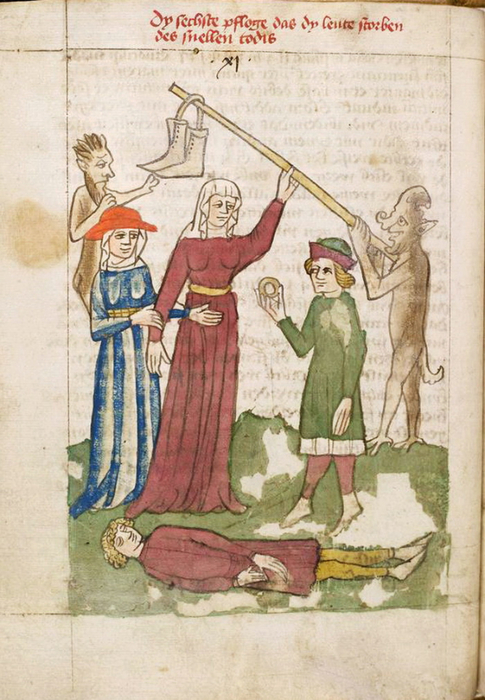 Dy sechste pfloge das dy leute storben
des snellen todis
xj